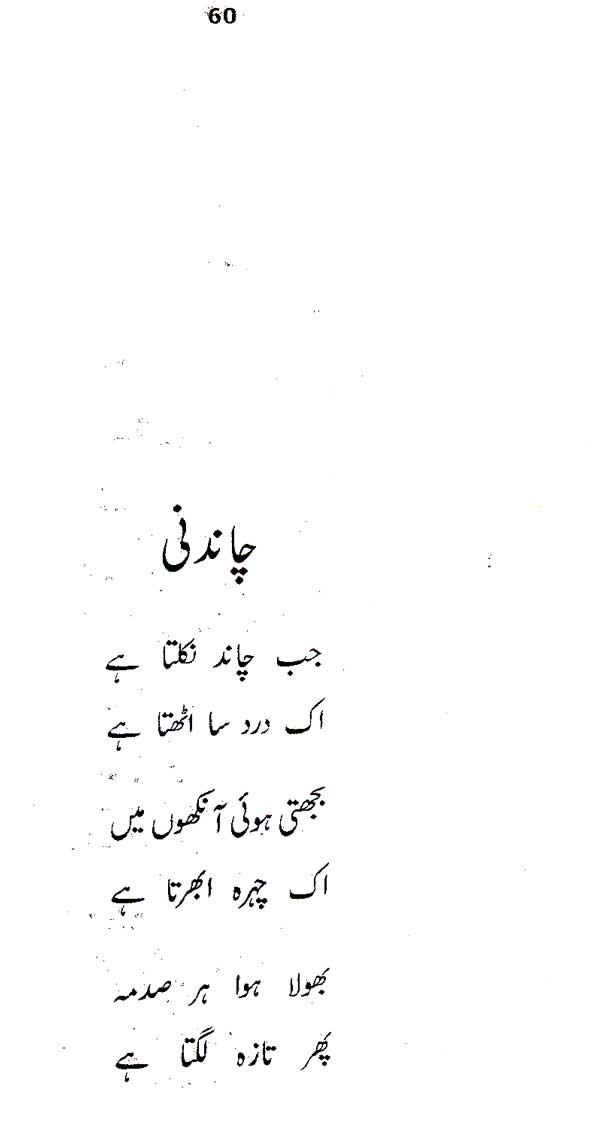 60
چاندنی
جب چاند نکلتا ہے
اک درد سا اٹھتا ہے
بجھتی ہوئی آنکھوں میں
اک چہرہ ابھرتا ہے
بھولا ہوا ہر صدمہ
پھر تازہ لگتا ہے